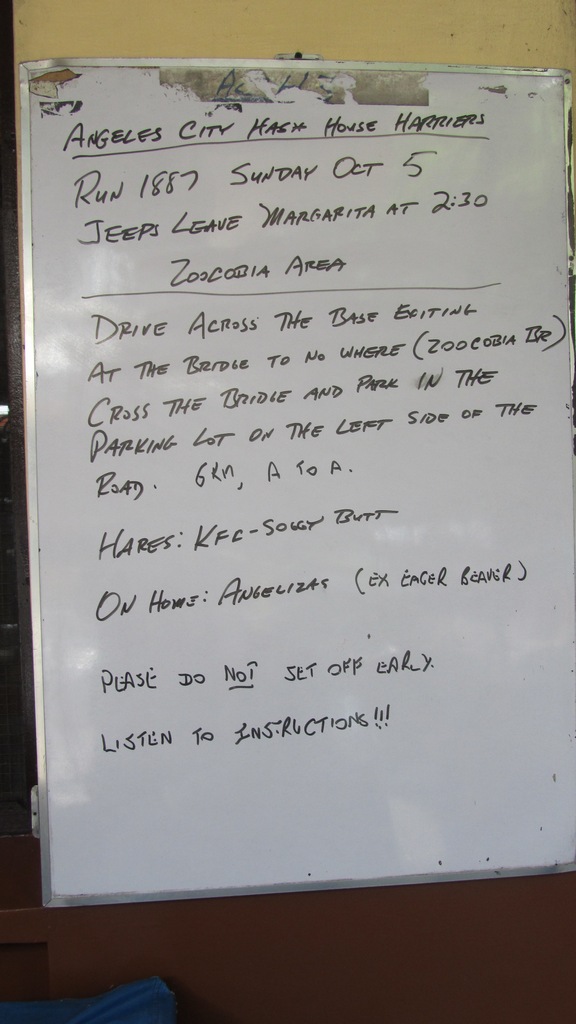 ANGELES CITY HASH HOUSE HARRIERS
RUN 1887 SUNDAY OCT 5
JEEPS LEAVE MARGARITA AT 2:30
ZOOCOBIA AREA
DRIVE ACROSS THE BASE EXITING
AT THE BRIDGE TO NO WHERE (ZOOCOBIA BR)
CROSS THE BRIDGE AND PARK IN THE
PARKING LOT ON THE LEFT SIDE OF THE
ROAD. 6KM, A TO A.
HARES: KFC-SOGGY BUTT
ON HOME: ANGELIZAS (EX EAGER BEAVER)
PLEASE DO NOT SET OFF EARLY.
LISTEN TO INSTRUCTIONS!!!